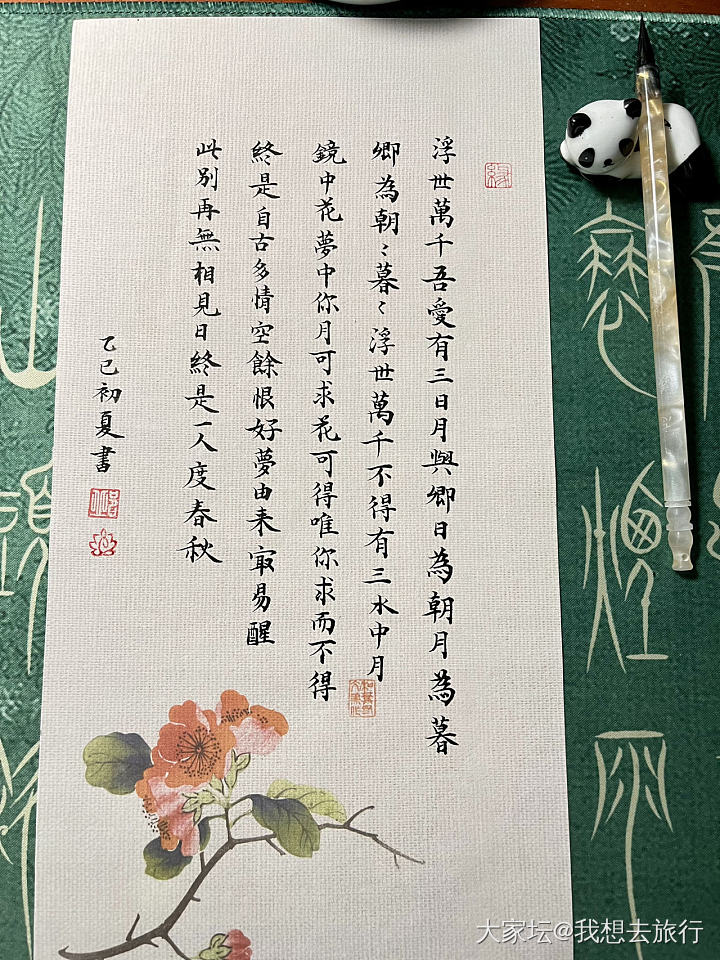 浮世萬千吾愛有三日月與卿日為朝月為暮
卿為朝〻暮〻浮世萬千不得有三水中月
鏡中花夢中你月可求花可得唯你求而不得
終是自古多情空餘恨好夢由来寂易醒
此別再無相見日終是一人度春秋
乙巳初夏書
大家坛@我想去旅行